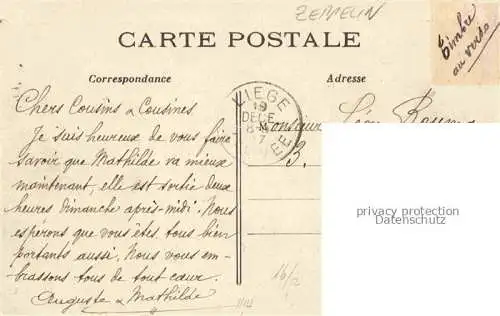 ZEPPELIN
Timbre
au verso
CARTE POSTALE
Correspondance
Adresse
Chers Cousins & Cousines
Je suis heureux de vous faire
savoir que Mathilde va mieux
maintenant, elle est sortie deux
heures dimanche après-midi. Nous
espérons que vous êtes tous bien
portants aussi. Nous vous em-
brassons tous de tout cœur.
Auguste & Mathilde
LIEGE
19
DECE
8-M
7
Monsieur Léon
B.
privacy protection
Datenschutz
16/2